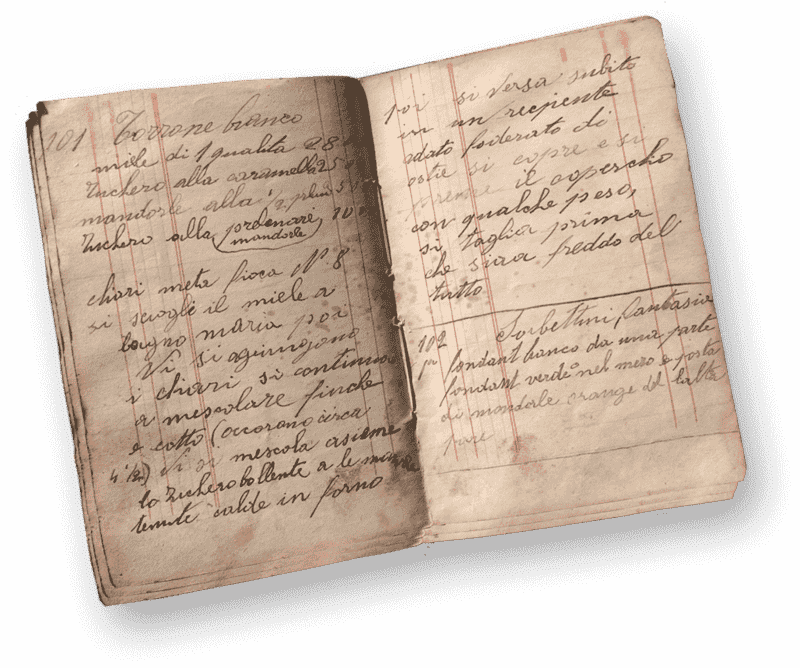 101 Torrone bianco
miele di 1 qualita 28
Zuchero alla caramella 25
mandorle alla 1/2
Zuchero alla (
mandorle) 10
chiari meta fioca N° 8
si scioglie il miele a
bagno maria poi
Vi si agiungono
i chiari si continua
a mescolare finche
e cotto (occorono circa
4 1/2) Vi si mescola asieme
lo Zuchero bollente a le
tenute calde in forno
poi si versa subito
in un recipiente
adato foderato di
ostie si copre e si
preme il coperchio
con qualche peso,
si taglia prima
che sira freddo del
tutto
102 Sorbettini fantasia
fondant bianco da una parte
fondant verde nel mezo e posta
di mandorle orange del laltra
parte